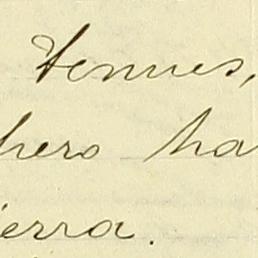 tennes,
hero ha
ierra.